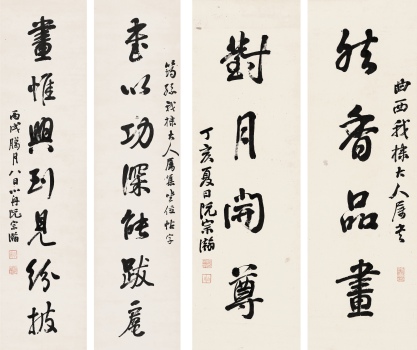 曲西我棣大人属书
然香品畫
對月開尊
丁亥夏日阮宗瀚
筠孫我棣大人属集坐位帖字
書以功深能跋扈
畫惟興到見紛披
丙戌臘月八日小舟阮宗瀚